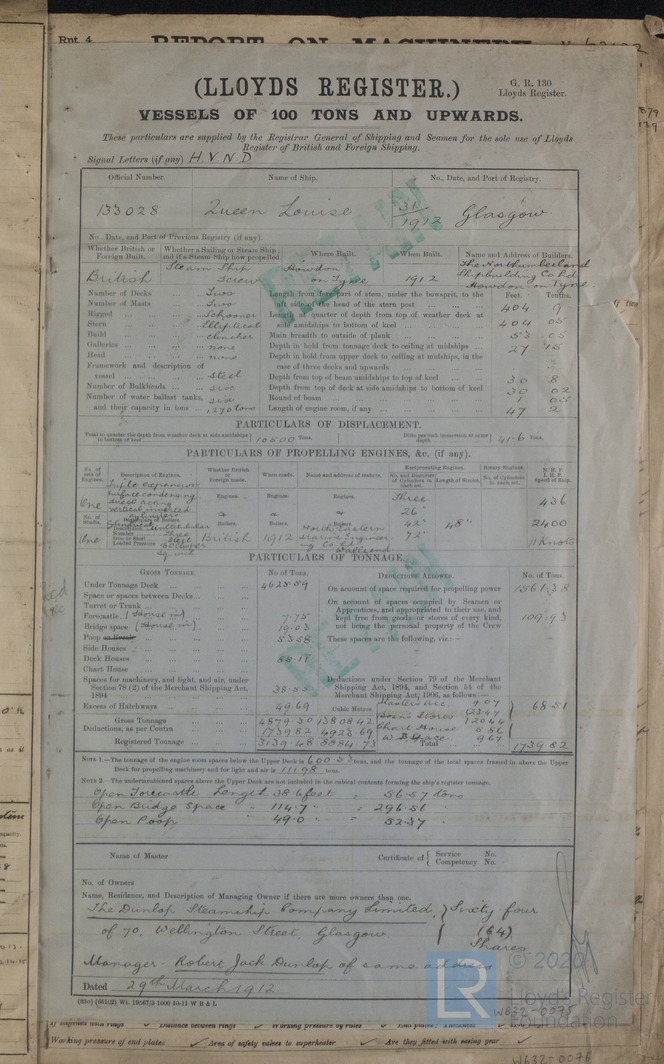 Rpt. 4.
REPORT ON MACHINERY
(LLOYDS REGISTER.)
G. R. 130
Lloyds Register.
VESSELS OF 100 TONS AND UPWARDS.
These particulars are supplied by the Registrar General of Shipping and Seamen for the sole use of Lloyds
Register of British and Foreign Shipping.
Signal Letters (if any) H.V.N.D
Official Number. Name of Ship. No., Date, and Port of Registry.
133028 Queen Louise 31/1912 Glasgow.
No. Date, and Port of Previous Registry (if any).
Whether British or Foreign Built. Whether a Sailing or Steam Ship; and if a Steam Ship how propelled. Where Built. When Built. Name and Address of Builders.
British Steam Ship Screw Howdon on Tyne 1912 The Northumberland Shipbuilding Co Ld Howdon on Tyne
Feet. Tenths.
Number of Decks Two
Number of Masts Two
Rigged Schooner
Stern Elliptical
Build Clincher
Galleries none
Head none
Framework and description of
vessel steel
Number of Bulkheads six
Number of water ballast tanks, six
and their capacity in tons 1270 tons
Length from fore part of stem, under the bowsprit, to the
aft side of the head of the stern post 404 9
Length at quarter of depth from top of weather deck at
side amidships to bottom of keel 404 05
Main breadth to outside of plank 53 05
Depth in hold from tonnage deck to ceiling at midships 27 15
Depth in hold from upper deck to ceiling at midships, in the
case of three decks and upwards
Depth from top of beam amidships to top of keel 30 8
Depth from top of deck at side amidships to bottom of keel 30 02
Round of beam 1 05
Length of engine room, if any 47 2
PARTICULARS OF DISPLACEMENT.
Total to quarter the depth from weather deck at side amidships to bottom of keel 10500 Tons. Ditto per inch immersion at same depth 41.6 Tons.
PARTICULARS OF PROPELLING ENGINES, &c. (if any).
No. of sets of Engines. Description of Engines. Whether British or Foreign made. When made. Name and address of makers. Reciprocating Engines. Rotary Engines. N.H.P. I.H.P. Speed of Ship.
No. and Diameter of Cylinders in each set. Length of Stroke. No. of Cylinders in each set.
One Triple expansion Surface condensing direct acting vertical inverted Three 26" 42" 72" 48" 436 2400 11 Knots
Engines. Engines. Engines.
No. of Shafts. Particulars of Boilers.
Boilers. Boilers. Boilers.
Description
Number Three
Iron or Steel Steel
Loaded Pressure
One British 1912 North Eastern Marine Engineering Co Ld Wallsend
PARTICULARS OF TONNAGE.
GROSS TONNAGE. No. of Tons. DEDUCTIONS ALLOWED. No. of Tons.
Under Tonnage Deck 4625.59
Space or spaces between Decks
Turret or Trunk
Forecastle (Closed in) 7.75
Bridge space (Closed in) 19.53
Poop or Break 53.58
Side Houses
Deck Houses
Chart House
Spaces for machinery, and light, and air, under
Section 78 (2) of the Merchant Shipping Act,
1894 38.55
Excess of Hatchways 49.69
On account of space required for propelling power 1561.38
On account of spaces occupied by Seamen or
Apprentices, and appropriated to their use, and
kept free from goods or stores of every kind,
not being the personal property of the Crew 109.93
These spaces are the following, viz:—
Deductions under Section 79 of the Merchant
Shipping Act, 1894, and Section 54 of the
Merchant Shipping Act, 1906, as follows—
Cubic Metres.
Masters acc 9.07
Boatns Stores
Chart House
W. B. Space 9.67
68.51
Gross Tonnage 4879.30 13808.42
Deductions, as per Contra 1739.82 4923.69
Registered Tonnage 3139.48 8884.73
Total 1739.82
NOTE 1.—The tonnage of the engine room spaces below the Upper Deck is 600.53 tons, and the tonnage of the total spaces framed in above the Upper
Deck for propelling machinery and for light and air is 111.98 tons.
NOTE 2.—The undermentioned spaces above the Upper Deck are not included in the cubical contents forming the ship's register tonnage.
Open Forecastle Length 38.6 feet = 56.57 tons
Open Bridge Space " 114.7 " = 296.51 "
Open Poop " 49.0 " = 52.37 "
Name of Master Certificate of { Service No.
Competency No.
No. of Owners
Name, Residence, and Description of Managing Owner if there are more owners than one.
The Dunlop Steamship Company Limited, } Sixty four
of 70, Wellington Street, Glasgow (64)
Shares
Manager. Robert Jack Dunlop of same address
Dated 29th March 1912
RETAIN
RETAIN
© 2020
LR
Lloyd's Register
Foundation
W632-0075
Working pressure of end plates Area of safety valves to superheater Are they fitted with easing gear
W632-0076